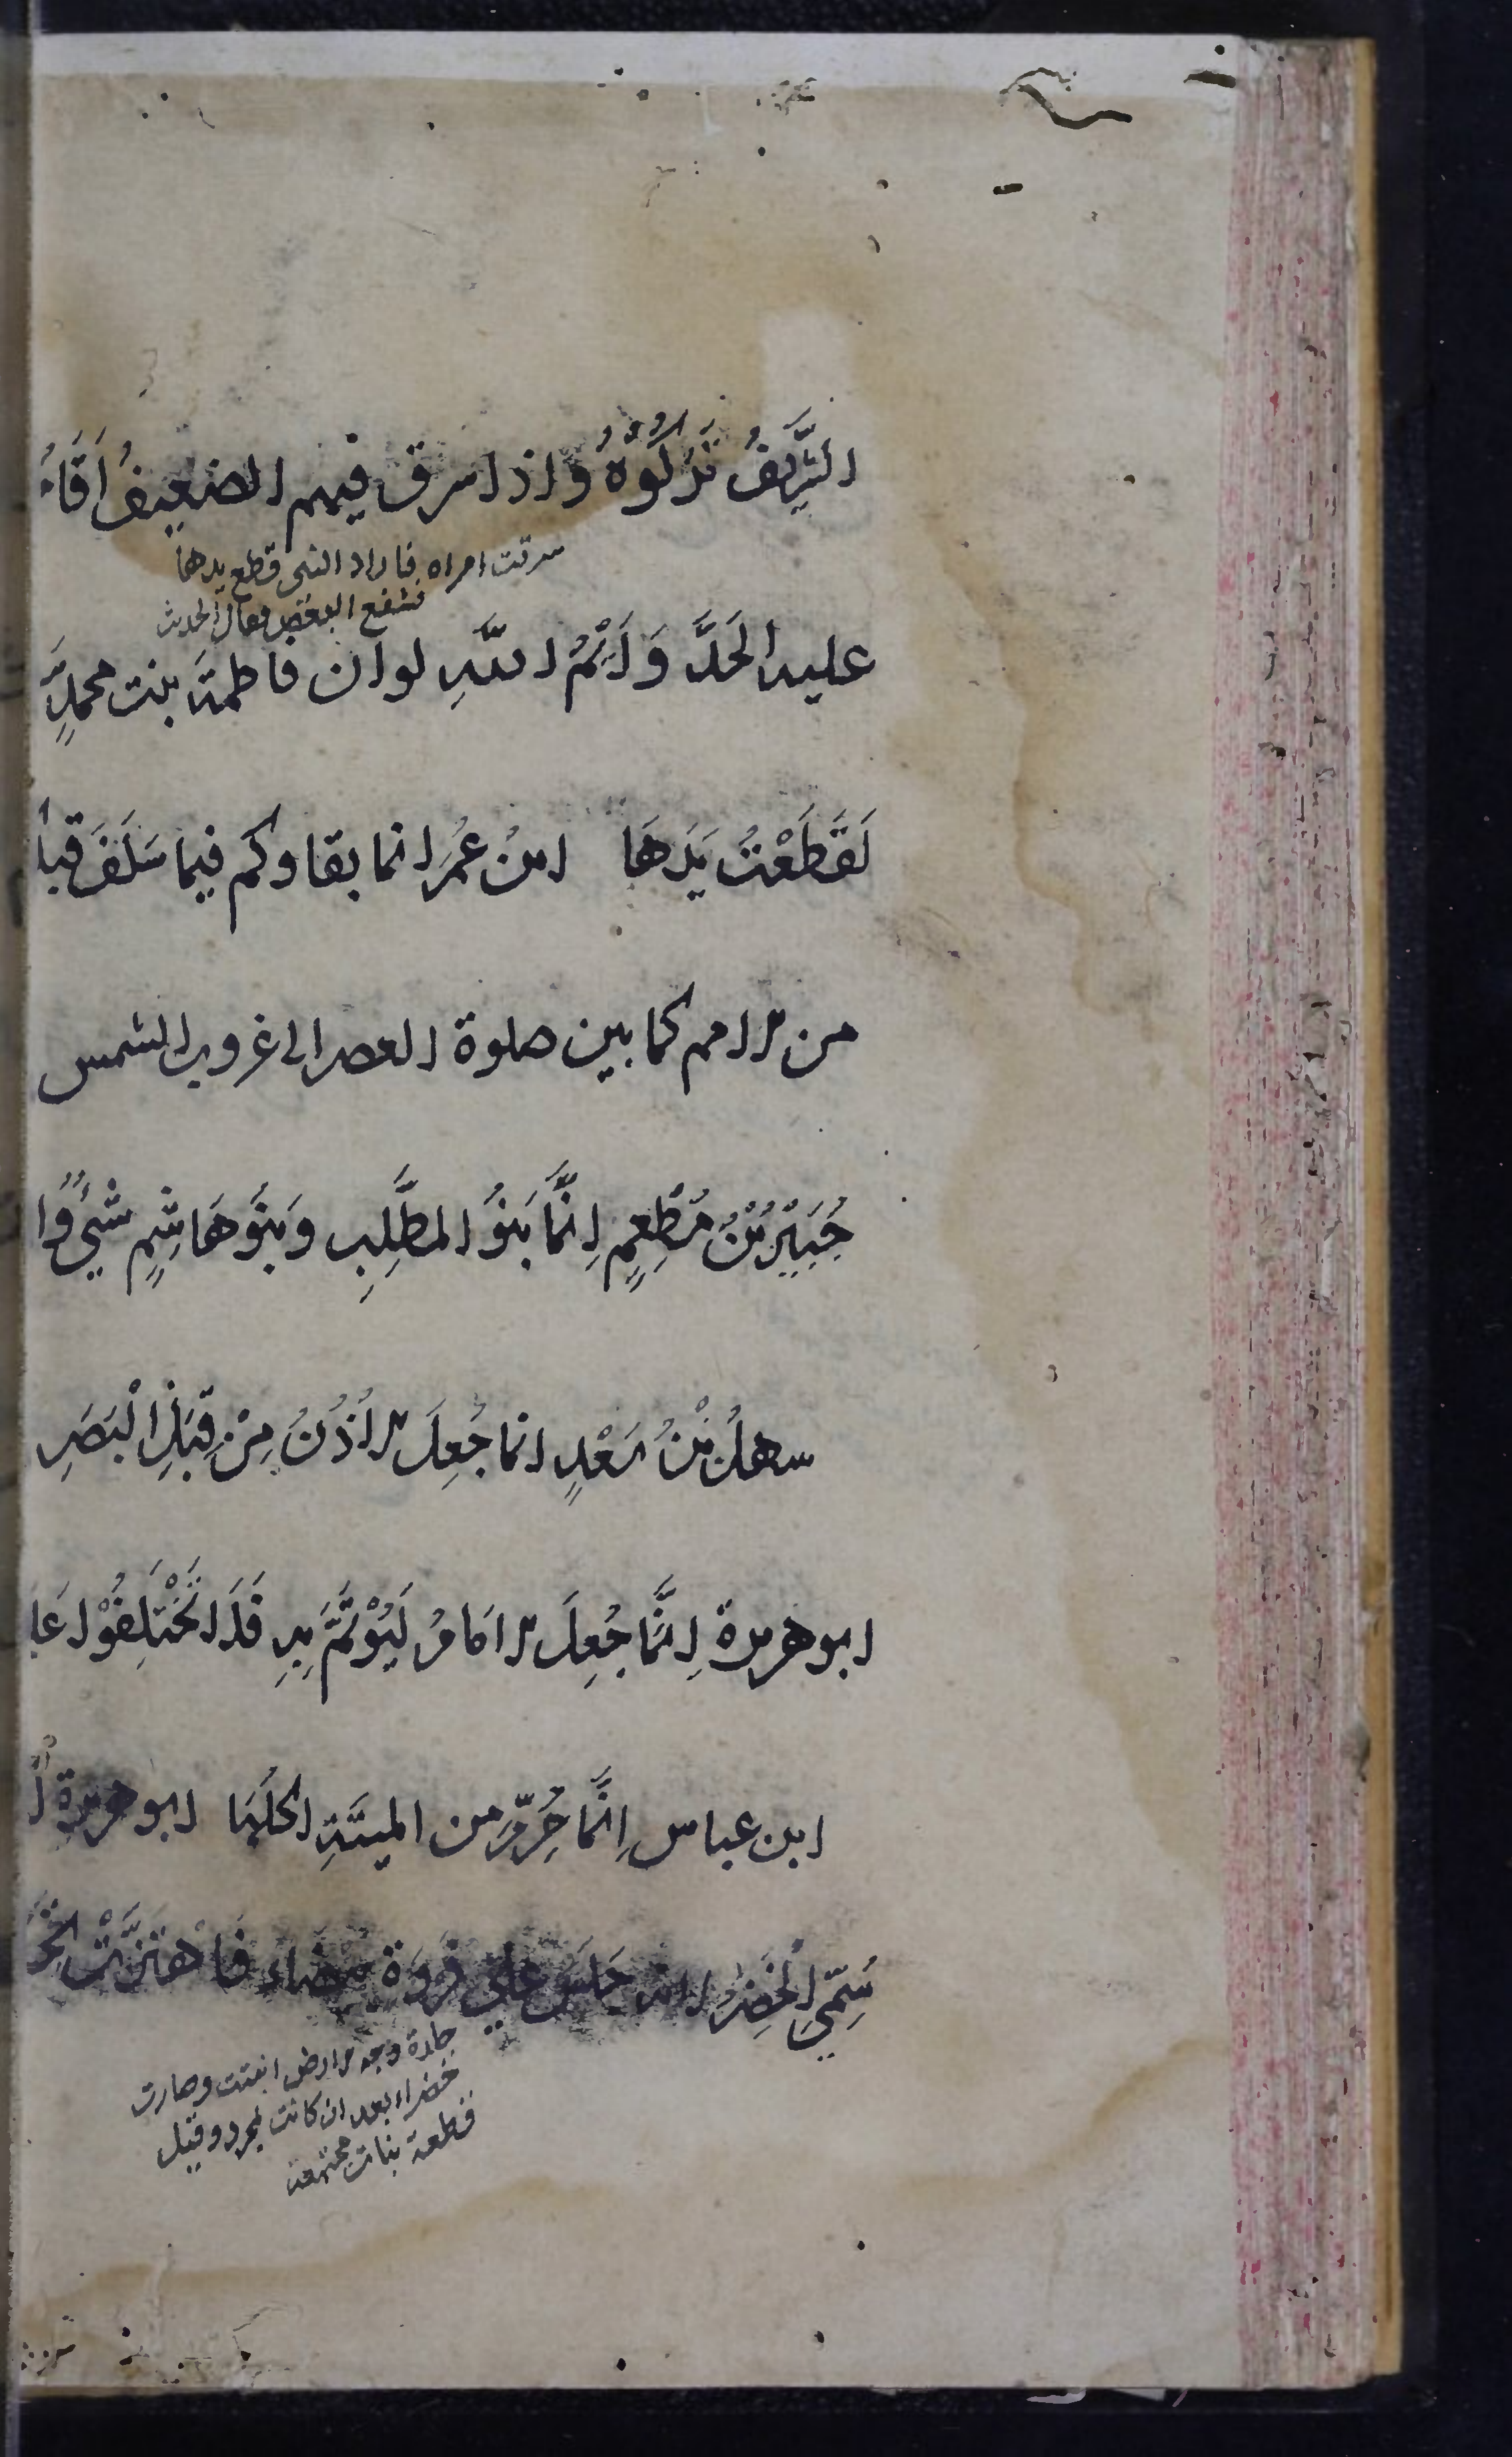 الشَّرِيفُ تَرَكُوْهُ وَاذا سرق فيهم الضعيفُ اَقَامُ
سرقت امراه فاراد النبى قطع يدها
فشفع البعض فقال الحديث
عليه الحَدَّ وَاَيْمُ اللّٰهِ لو ان فاطمةَ بنت محمدٍ
لَقَطَعْتُ يَدَهَا ابنُ عُمَرَ انما بقاوكم فيما سَلَفَ قبل
من الامم كما بين صلوة العصر الى غروب الشمس
جُبَيْرُ بْنُ مُطْعِمٍ اِنَّمَا بَنُو المطَّلِبِ وَبَنُو هَاشِمٍ شَيْءٌ وا
سهلُ بْنُ سَعْدٍ انما جُعِلَ الاُذُنُ مِنْ قِبَلِ الْبَصَرِ
ابو هريرة اِنَّمَا جُعِلَ الاِمَامُ لِيُؤْتَمَّ بِهِ فَلَا تَخْتَلِفُوْا عَل
ابن عباس اِنَّمَا حُرِّمَ من الميتَةِ اكلُهَا ابو هريرة اِ
سُمِّيَ الْخَضِرُ لانه جَلَسَ عَلىٰ فَرْوَةٍ بيضاء فَاهْتَزَّتْ
جلدة وجه الارض انبتت وصارت
خضراء بعد ان كانت جرد وقيل
قطعة نبات مجتمعة